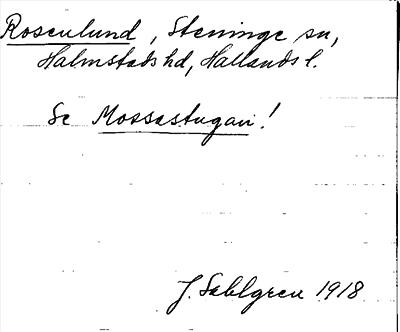 Rosenlund, Steninge sn,
Halmstads hd, Hallands l.
Se Mossastugan!
J. Sahlgren 1918